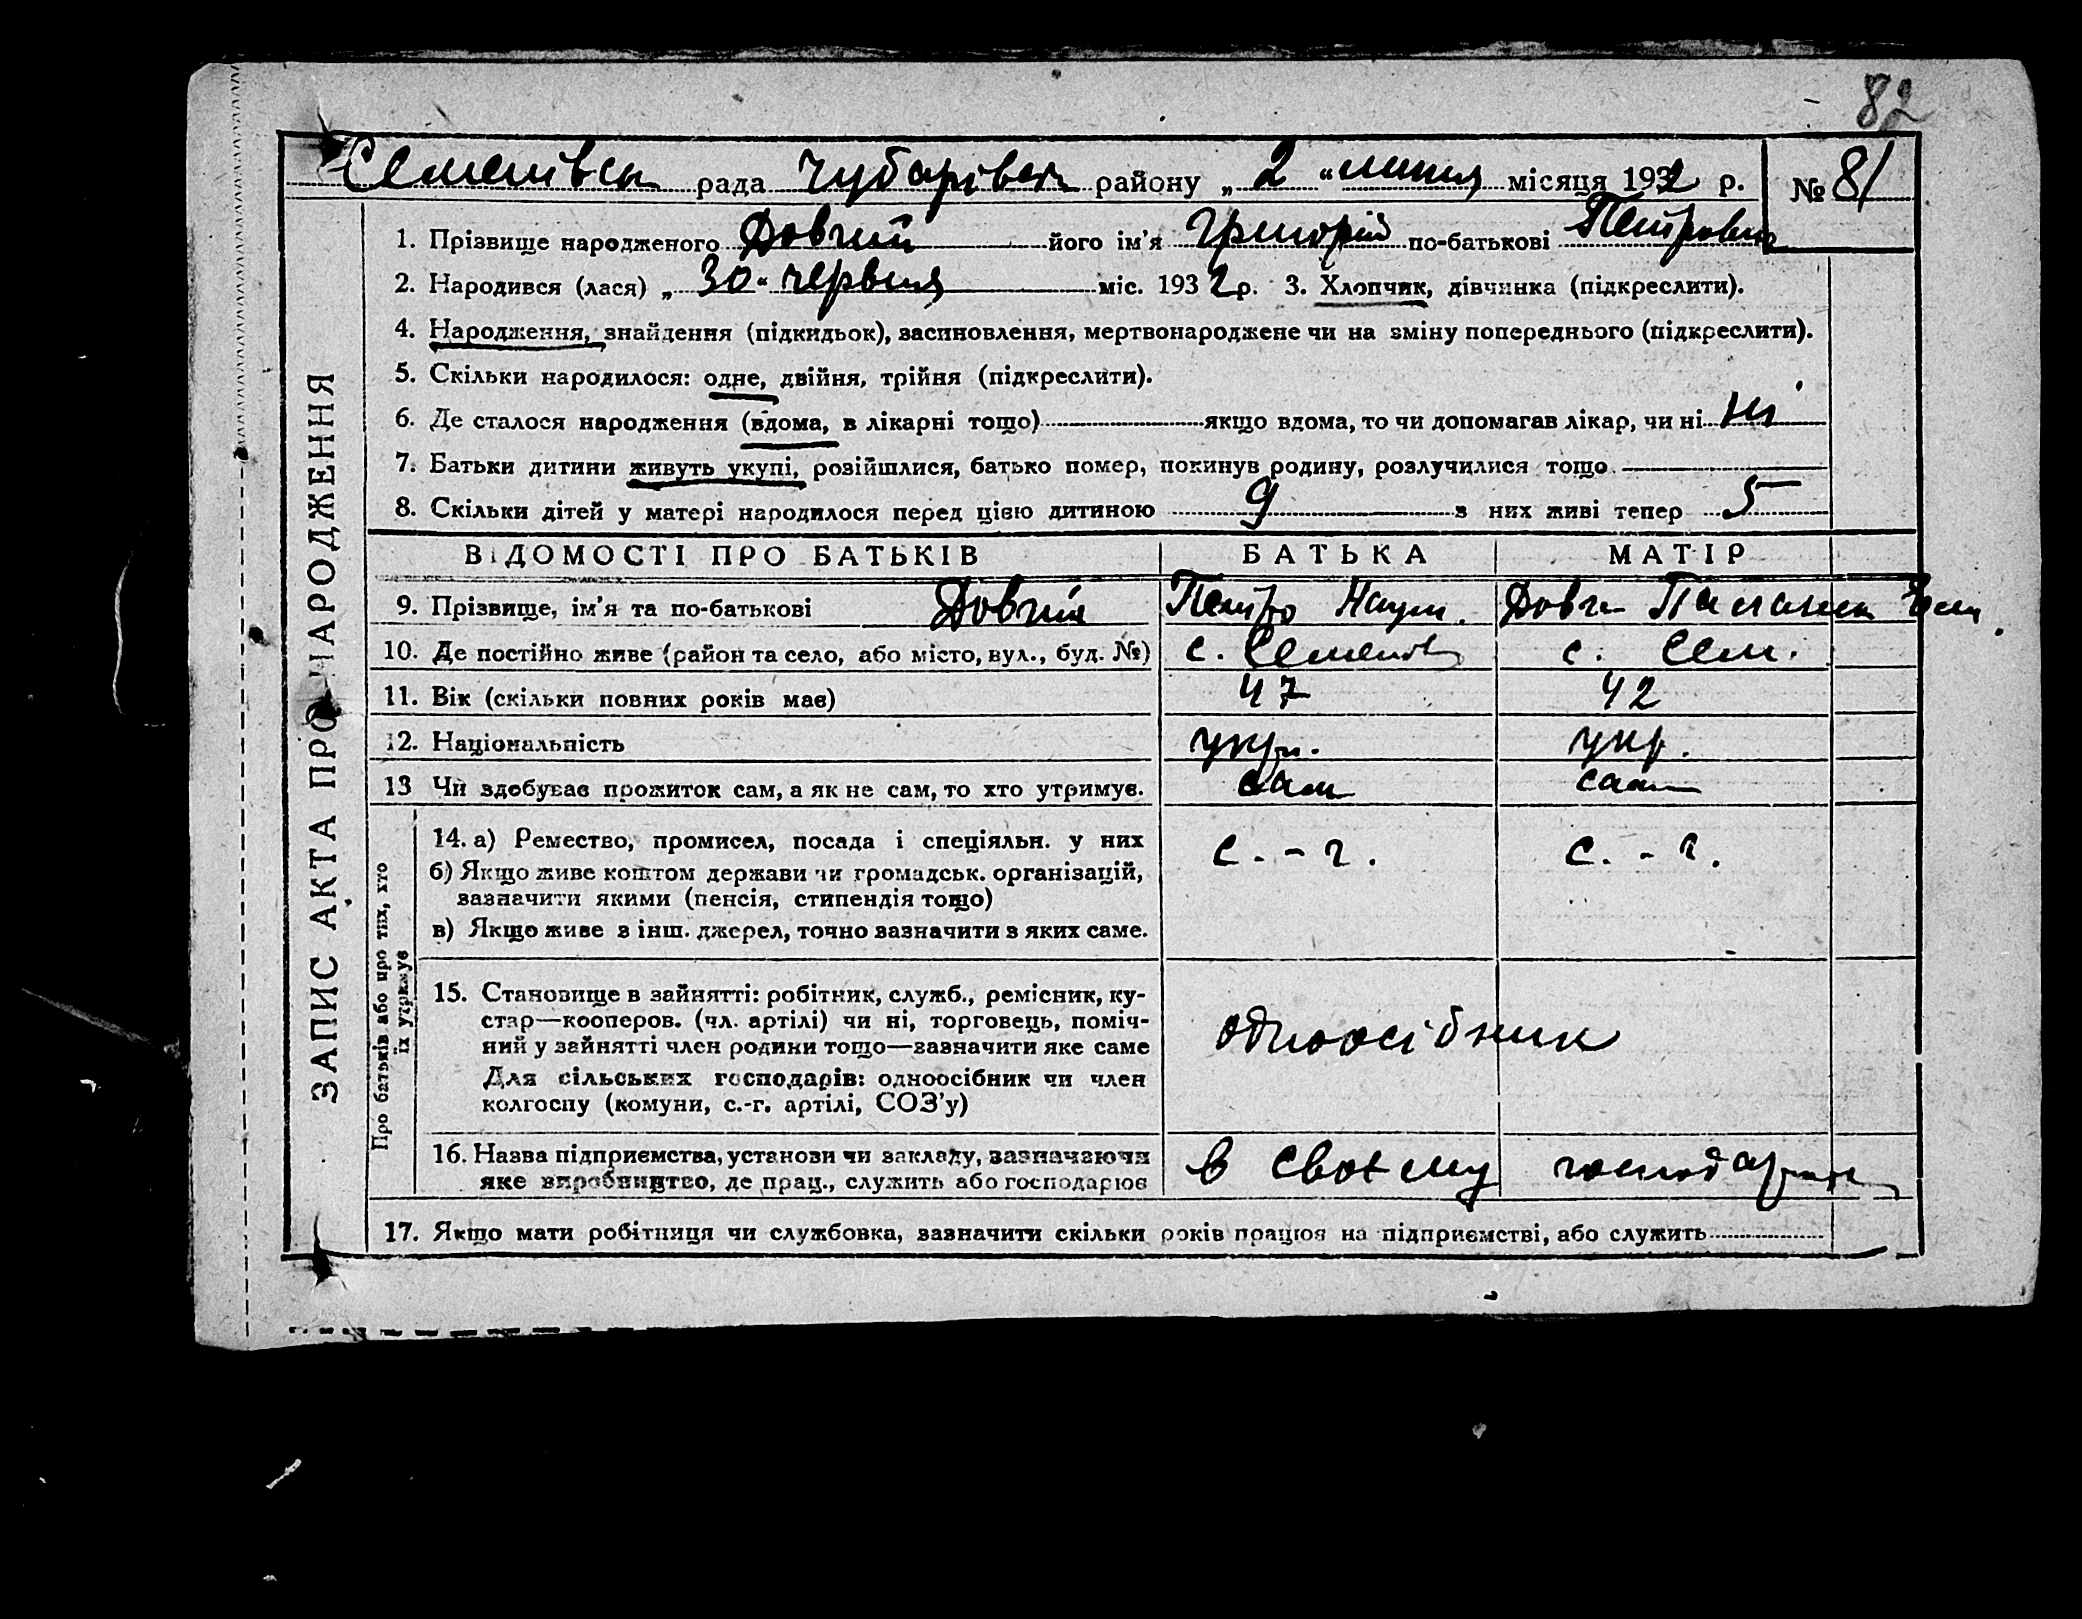 82
Семенівськ рада Чубарівськ району „ 2 “ липня місяця 1932 р. № 81
ЗАПИС АКТА ПРО НАРОДЖЕННЯ
1. Прізвище народженого Довгий його ім'я Григорій по-батькові Петрович
2. Народився (лася) „ 30 “ червня міс. 1932 р. 3. Хлопчик, дівчинка (підкреслити).
4. Народження, знайдення (підкидьок), засиновлення, мертвонароджене чи на зміну попереднього (підкреслити).
5. Скільки народилося: одне, двійня, трійня (підкреслити).
6. Де сталося народження (вдома, в лікарні тощо) якщо вдома, то чи допомагав лікар, чи ні ні
7. Батьки дитини живуть укупі, розійшлися, батько помер, покинув родину, розлучилися тощо
8. Скільки дітей у матері народилося перед цією дитиною 9 з них живі тепер 5
ВІДОМОСТІ ПРО БАТЬКІВ БАТЬКА МАТІР
9. Прізвище, ім'я та по-батькові Довгий Петро Наум. Довга
10. Де постійно живе (район та село, або місто, вул., буд. №) с. Семенов с. Сем.
11. Вік (скільки повних років має) 47 42
12. Національність укр. укр.
13 Чи здобував прожиток сам, а як не сам, то хто утримує. сам сам
Про батьків або про тих, хто їх утримує
14. а) Ремество, промисел, посада і спеціяльн. у них с.-г. с.-г.
б) Якщо живе коштом держави чи громадськ. організацій,
зазначити якими (пенсія, стипендія тощо)
в) Якщо живе з інш. джерел, точно зазначити з яких саме.
15. Становище в зайнятті: робітник, служб., ремісник, ку-
стар—кооперов. (чл. артілі) чи ні, торговець, поміч-
ний у зайнятті член родини тощо—зазначити яке саме
Для сільських господарів: одноосібник чи член
колгоспу (комуни, с.-г. артілі, СОЗ'у)
одноосібник
16. Назва підприємства, установи чи закладу, зазначаючи
яке виробництво, де прац., служить або господарює
в своєму господарстві
17. Якщо мати робітниця чи службовка, зазначити скільки років працює на підприємстві, або служить